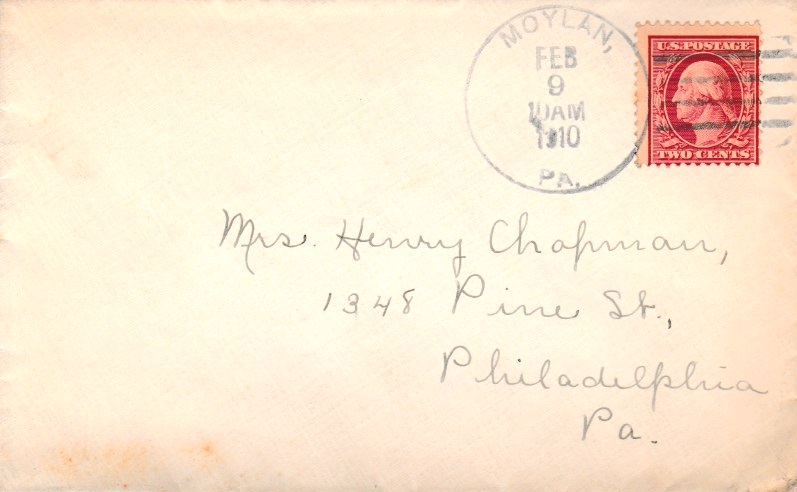 MOYLAN,
FEB
9
10AM
1910
PA.
U.S. POSTAGE
TWO CENTS
Mrs. Henry Chapman,
1348 Pine St.,
Philadelphia
Pa.